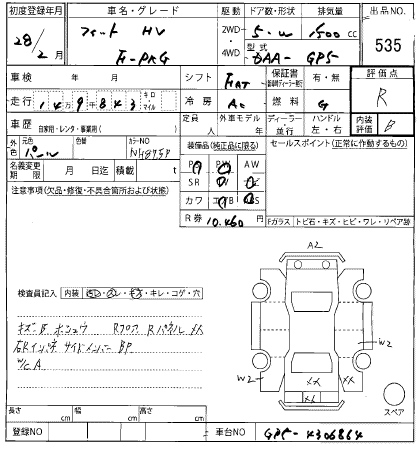 初度登録年月 車名・グレード 駆動 ドア数・形状 排気量 出品NO.
28/2月 フィット HV 2WD・4WD 5・W 1500cc 535
F-PKG 型式 DAA-GP5
車検 年 月 シフト FAT 保証書 有・無 評価点
走行 149千843 キロ マイル 冷房 AC 燃料 G R
車歴 自家用・レンタ・事業用( ) 定員 人 外車モデル 年 ディーラー 並行 ハンドル 左・右 内装評価 B
外色 元色 パール 色替 カラーNO NH875P 装備品(純正品に限る) セールスポイント(正常に作動するもの)
名義変更期限 月 日迄 積載 t PS PW AW
注意事項(欠品・修復・不具合箇所および状態) SR
カワ
R券 10,460 円 Fガラス トビ石・キズ・ヒビ・ワレ・リペア跡
A2
検査員記入 内装 ・キレ・コゲ・穴
キズ・凹 ホシュウ Rフロア Rパネル メス
右Rインパネ サイドメンバー BP
W/C A
W2
W2
XX XX
XX
スペア
長さ cm 幅 cm 高さ cm
登録NO 車台NO GP5-4306864